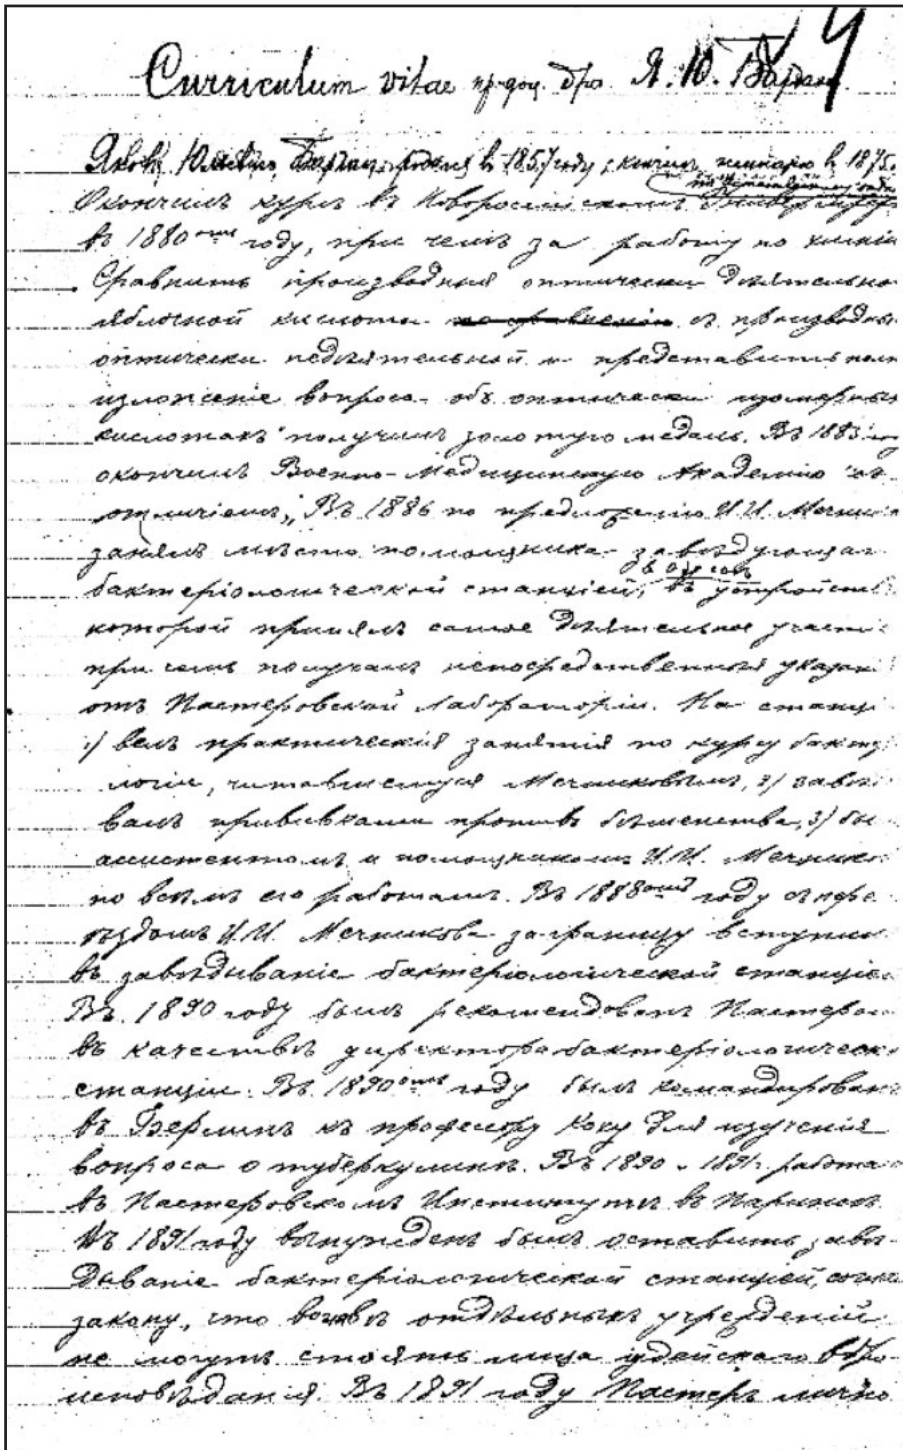 4
Curriculum vitae пр.-доц. д-ра Я. Ю. Бардах
Яковъ Юльевичъ Бардахъ, родился в 1857 году, кончилъ гимназію в 1875.
Окончилъ курсъ въ Новороссійскомъ Университетѣ
въ 1880омъ году, при чемъ за работу по химіи
Сравнить производныя оптически дѣятельно
яблочной кислоты по сравненію съ производны
оптически недѣятельной и представить полн
изложеніе вопроса объ оптически изомерных
кислотахъ получилъ золотую медаль. Въ 1883
окончилъ Военно-Медицинскую Академію съ
отличіемъ, Въ 1886 по предложенію И. И. Мечник
занялъ мѣсто помощника завѣдующаг
в Одессѣ
бактеріологической станціей, въ устройств
которой принялъ самое дѣятельное участі
при чемъ получалъ непосредственныя указан
отъ Пастеровской Лабораторіи. На станці
1) велъ практическія занятія по курсу бактер
логіи, читавшемуся Мечниковымъ, 2) завѣ
валъ прививками противъ бѣшенства, 3) бы
ассистентомъ и помощникомъ И. И. Мечнико
по всѣмъ его работамъ. Въ 1888омъ году съ пере
ѣздомъ И. И. Мечникова за границу вступил
въ завѣдываніе бактеріологической станціе
Въ 1890 году былъ рекомендованъ Пастеро
въ качествѣ директора бактеріологическ
станціи. Въ 1890омъ году былъ командирован
въ Берлинъ къ профессору Коху для изученія
вопроса о туберкулинѣ. Въ 1890 и 1891 г. работа
въ Пастеровскомъ Институтѣ въ Парижѣ.
Въ 1891 году вынужденъ былъ оставить завѣ
дываніе бактеріологической станціей, согл
закону, что во главѣ отдѣльныхъ учрежденій
не могутъ стоять лица іудейскаго вѣро
исповѣданія. Въ 1891 году Пастеръ лично